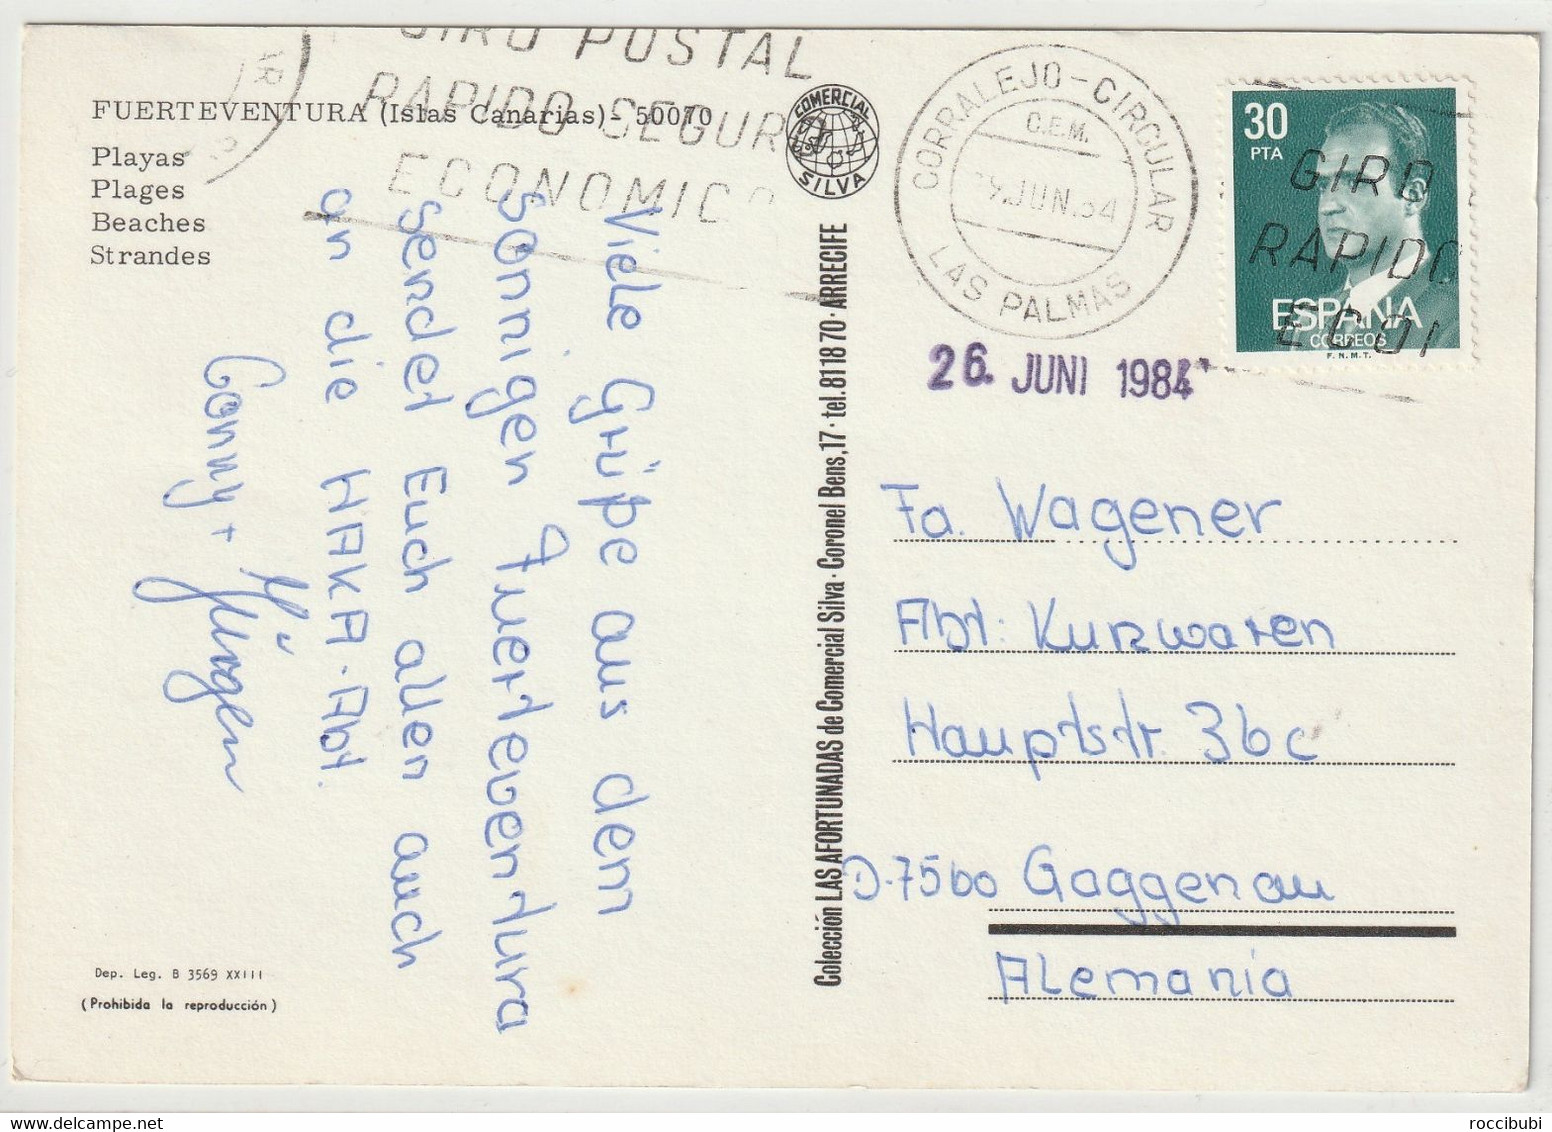 GIRO POSTAL
RAPIDO SEGUR
ECONOMICO
FUERTEVENTURA (Islas Canarias) - 50070
Playas
Plages
Beaches
Strandes
COMERCIAL
SILVA
CORRALEJO - CIRCULAR
C.E.M.
JUN.84
LAS PALMAS
30
PTA
GIRO
RAPIDO
ECO
ESPAÑA
CORREOS
F.N.M.T.
26. JUNI 1984
Viele Grüße aus dem
sonnigen Fuerteventura
sendet Euch allen auch
an die HAKA-Abt.
Conny + Jürgen
Colección LAS AFORTUNADAS de Comercial Silva · Coronel Bens, 17 · tel. 81 18 70 · ARRECIFE
Fa. Wagener
Abt: Kurzwaren
Hauptstr. 36c
D-7560 Gaggenau
Alemania
Dep. Leg. B 3569 XXIII
(Prohibida la reproducción)
roccibubi